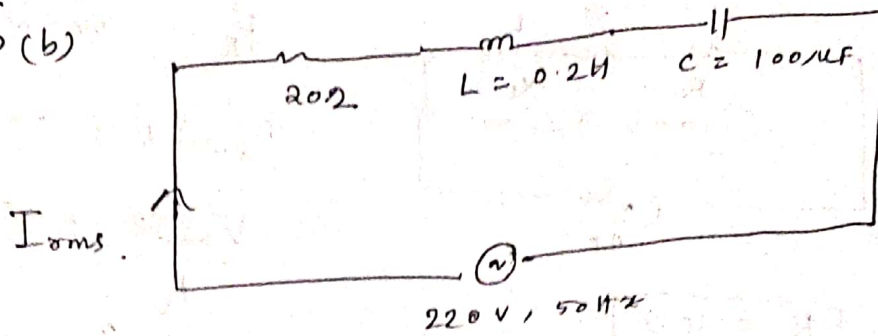 (b)
20Ω
L = 0.2H
C = 100μF
Irms.
220 V, 50Hz